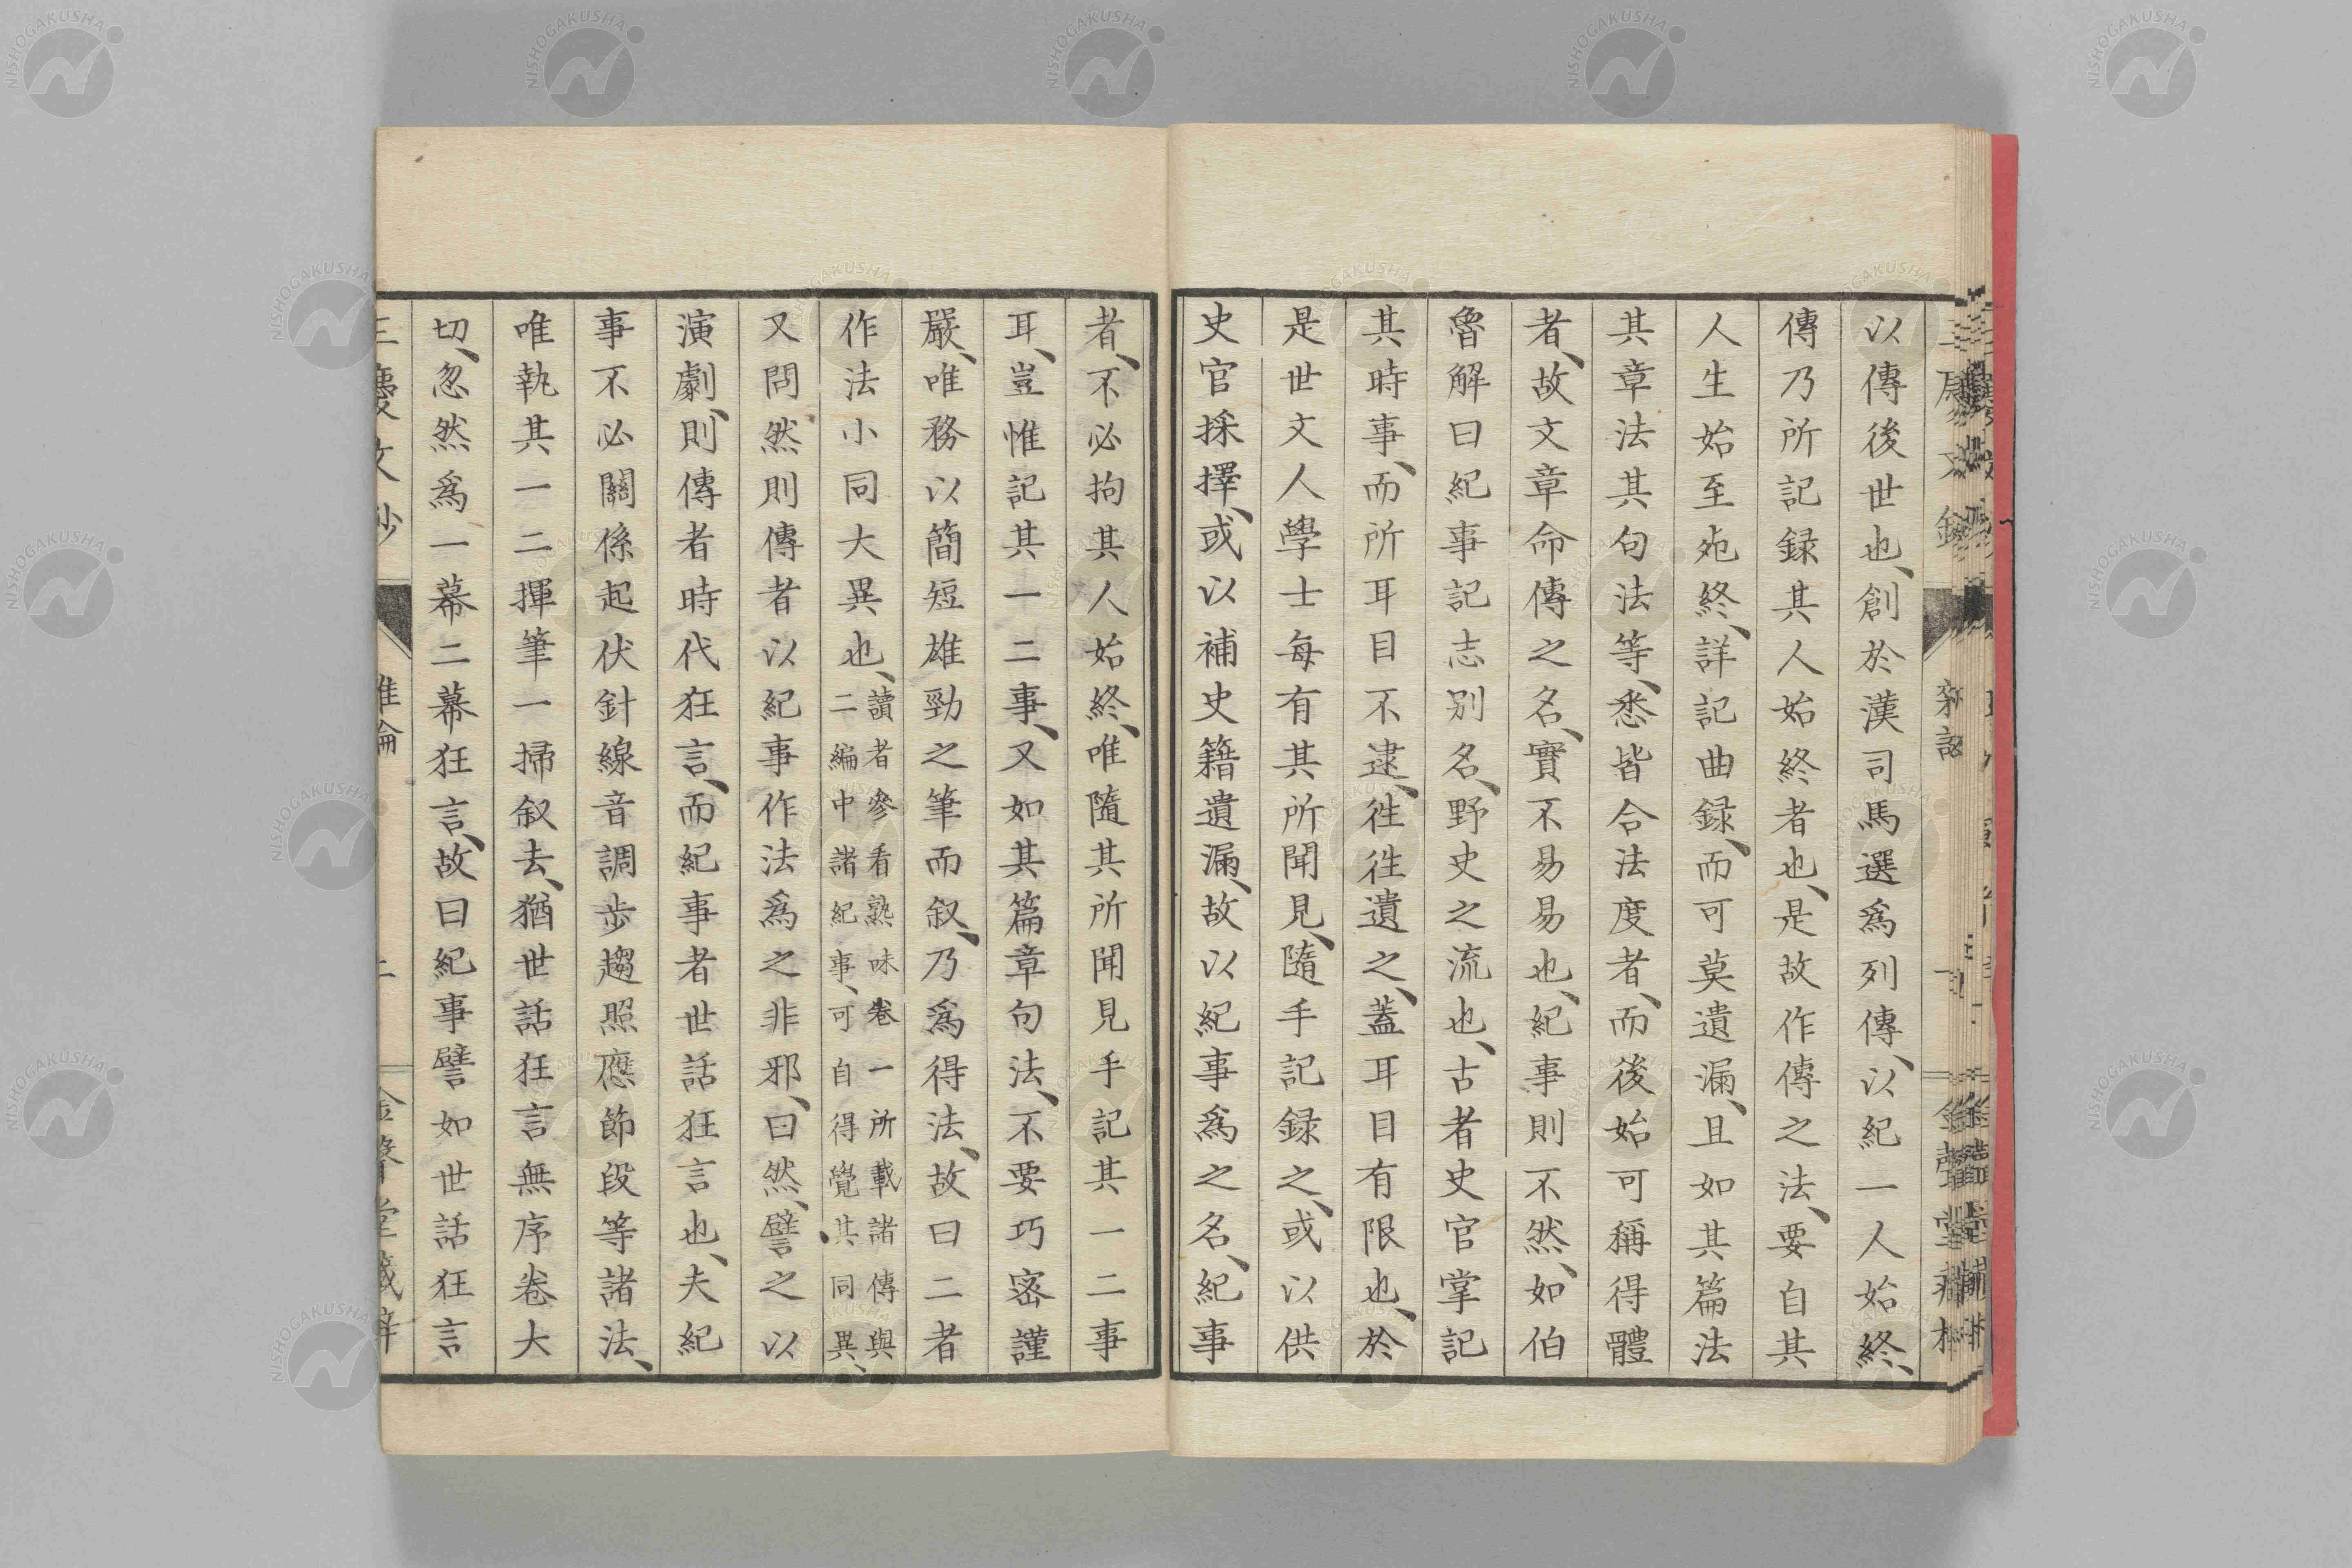 以傳後世也、創於漢司馬選爲列傳、以紀一人始終、
傳乃所記録其人始終者也、是故作傳之法、要自其
人生始至宛終、詳記曲録、而可莫遺漏、且如其篇法
其章法其句法等、悉皆合法度者、而後始可稱得體
者、故文章命傳之名、實不易易也、紀事則不然、如伯
魯解曰紀事記志別名、野史之流也、古者史官掌記
其時事、而所耳目不逮、徃徃遺之、蓋耳目有限也、於
是世文人學士每有其所聞見、隨手記録之、或以供
史官採擇、或以補史籍遺漏、故以紀事爲之名、紀事
者、不必拘其人始終、唯隨其所聞見手記其一二事
耳、豈惟記其一二事、又如其篇章句法、不要巧密謹
嚴、唯務以簡短雄勁之筆而叙、乃爲得法、故曰二者
作法小同大異也、讀者參看熟味卷一所載諸傳與
二編中諸紀事、可自得覺其同異、
又問然則傳者以紀事作法爲之非邪、曰然、譬之以
演劇、則傳者時代狂言、而紀事者世話狂言也、夫紀
事不必關係起伏針線音調步趨照應節段等諸法、
唯執其一二揮筆一掃叙去、猶世話狂言無序卷大
切、忽然爲一幕二幕狂言、故曰紀事譬如世話狂言
NISHOGAKUSHA